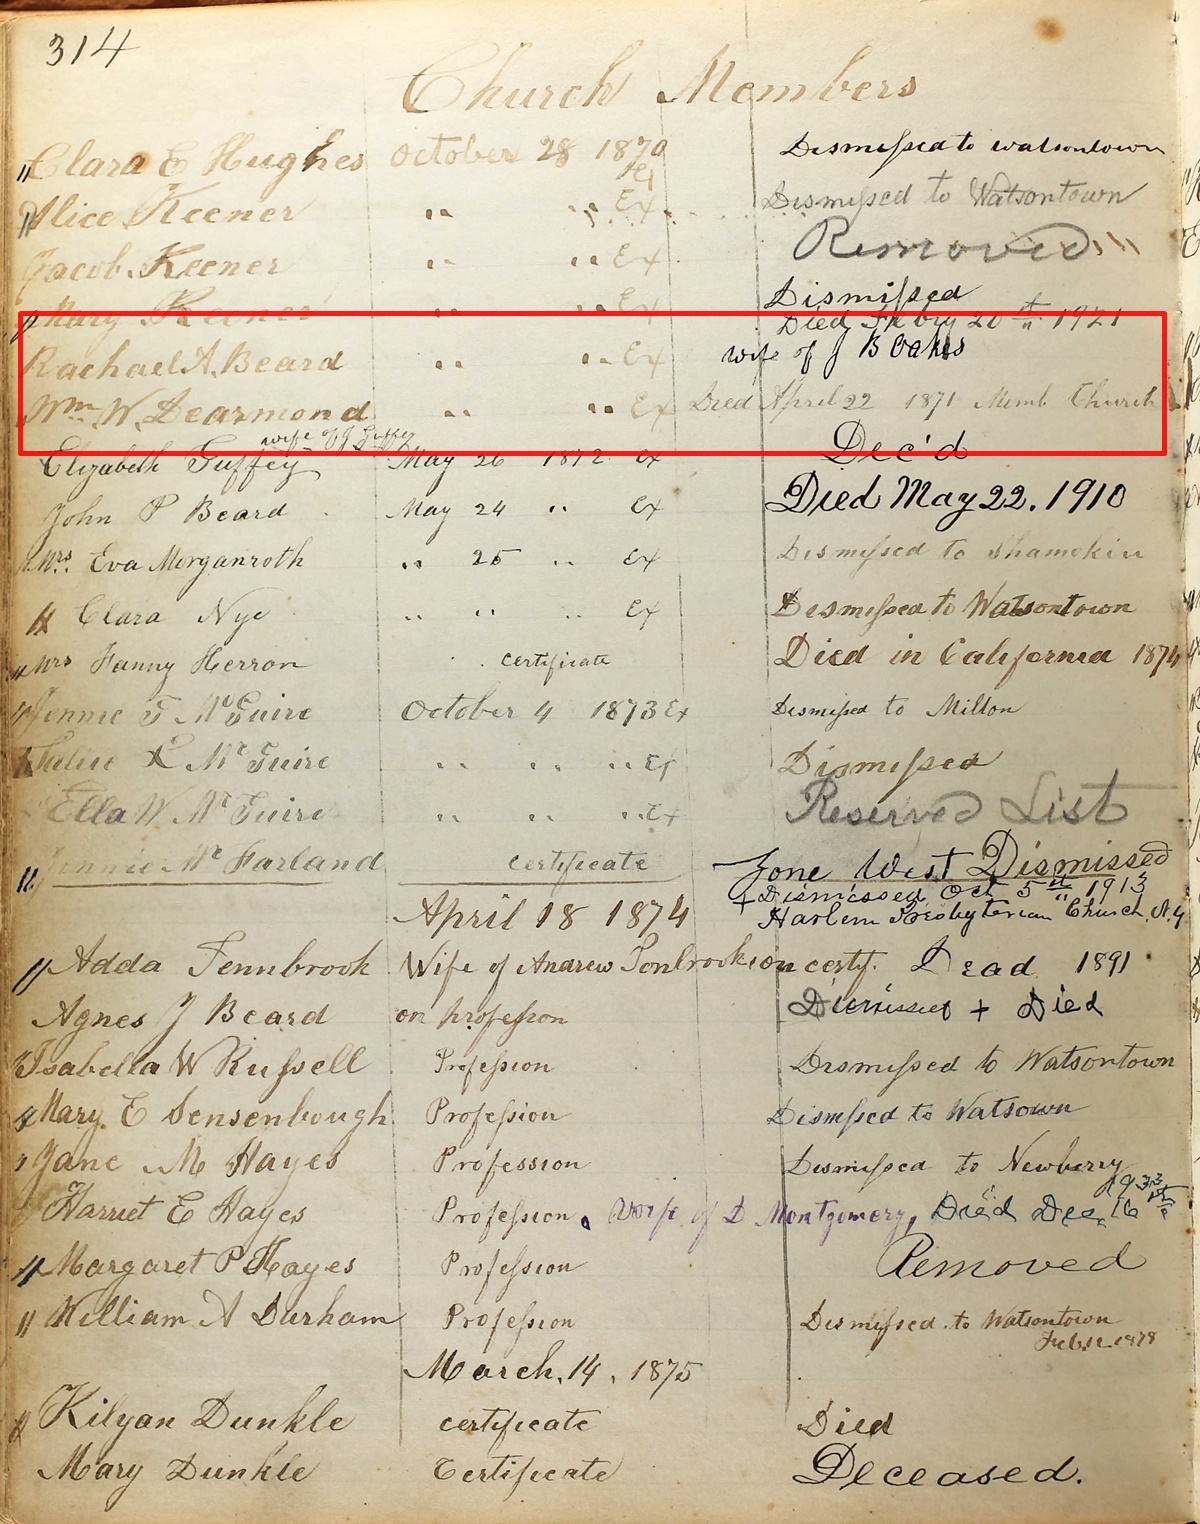 314
Church Members
" Clara E Hughes October 28 1870 Dismissed to Watsontown
" Alice Keener " " Ex Dismissed to Watsontown
Jacob Keener " " Ex Removed
" Mary Keener " " Ex Dismissed
Died Febry 20th 1921
Rachael A. Beard " " Ex wife of J B Oakes
Wm W. Dearmond " " Ex Died April 22 1871 Memb Church
wife of J Guffey
Elizabeth Guffey May 26 1872 Ex Dec'd
John P Beard May 24 " Ex Died May 22. 1910
Mrs. Eva Morganroth " 25 " Ex Dismissed to Shamokin
" Clara Nye " " " Ex Dismissed to Watsontown
" Mrs Fanny Herron " certificate Died in California 1874
" Jennie F McGuire October 4 1873 Ex Dismissed to Milton
McGuire " " " Ex Dismissed
Ella W McGuire " " " Ex Reserved List
" Jennie McFarland certificate Gone West Dismissed
+ Dismissed Oct 5th 1913
April 18 1874 Harlem Presbyterian Church, N.Y
" Adda Tennbrook Wife of Andrew Tenbrook, on certf. Dead 1891
Agnes J Beard on profession Dismissed + Died
" Isabella W Russell Profession Dismissed to Watsontown
" Mary. E Sensenbough Profession Dismissed to Watsown
" Jane M Hayes Profession Dismissed to Newberry
1933
" Harriet E Hayes Profession, Wife of D Montgomery, Died Dec. 16th
" Margaret P Hayes Profession Removed
" William A Durham Profession Dismissed to Watsontown
Feb 1878
March, 14, 1875
" Kilyan Dunkle certificate Died
Mary Dunkle Certificate Deceased.